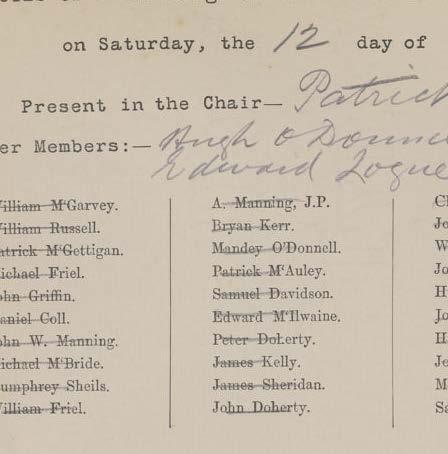 on Saturday, the 12 day of
Present in the Chair— Patrick
er Members:— Hugh O'Donne
Edward Logue
illiam M'Garvey.
illiam Russell.
atrick M'Gettigan.
ichael Friel.
ohn Griffin.
aniel Coll.
ohn W. Manning.
ichael M'Bride.
umphrey Sheils.
illiam Friel.
A. Manning, J.P.
Bryan Kerr.
Mandey O'Donnell.
Patrick M'Auley.
Samuel Davidson.
Edward M'Ilwaine.
Peter Doherty.
James Kelly.
James Sheridan.
John Doherty.
C
Je
W
Jo
H
Jo
H
Je
M
Sa